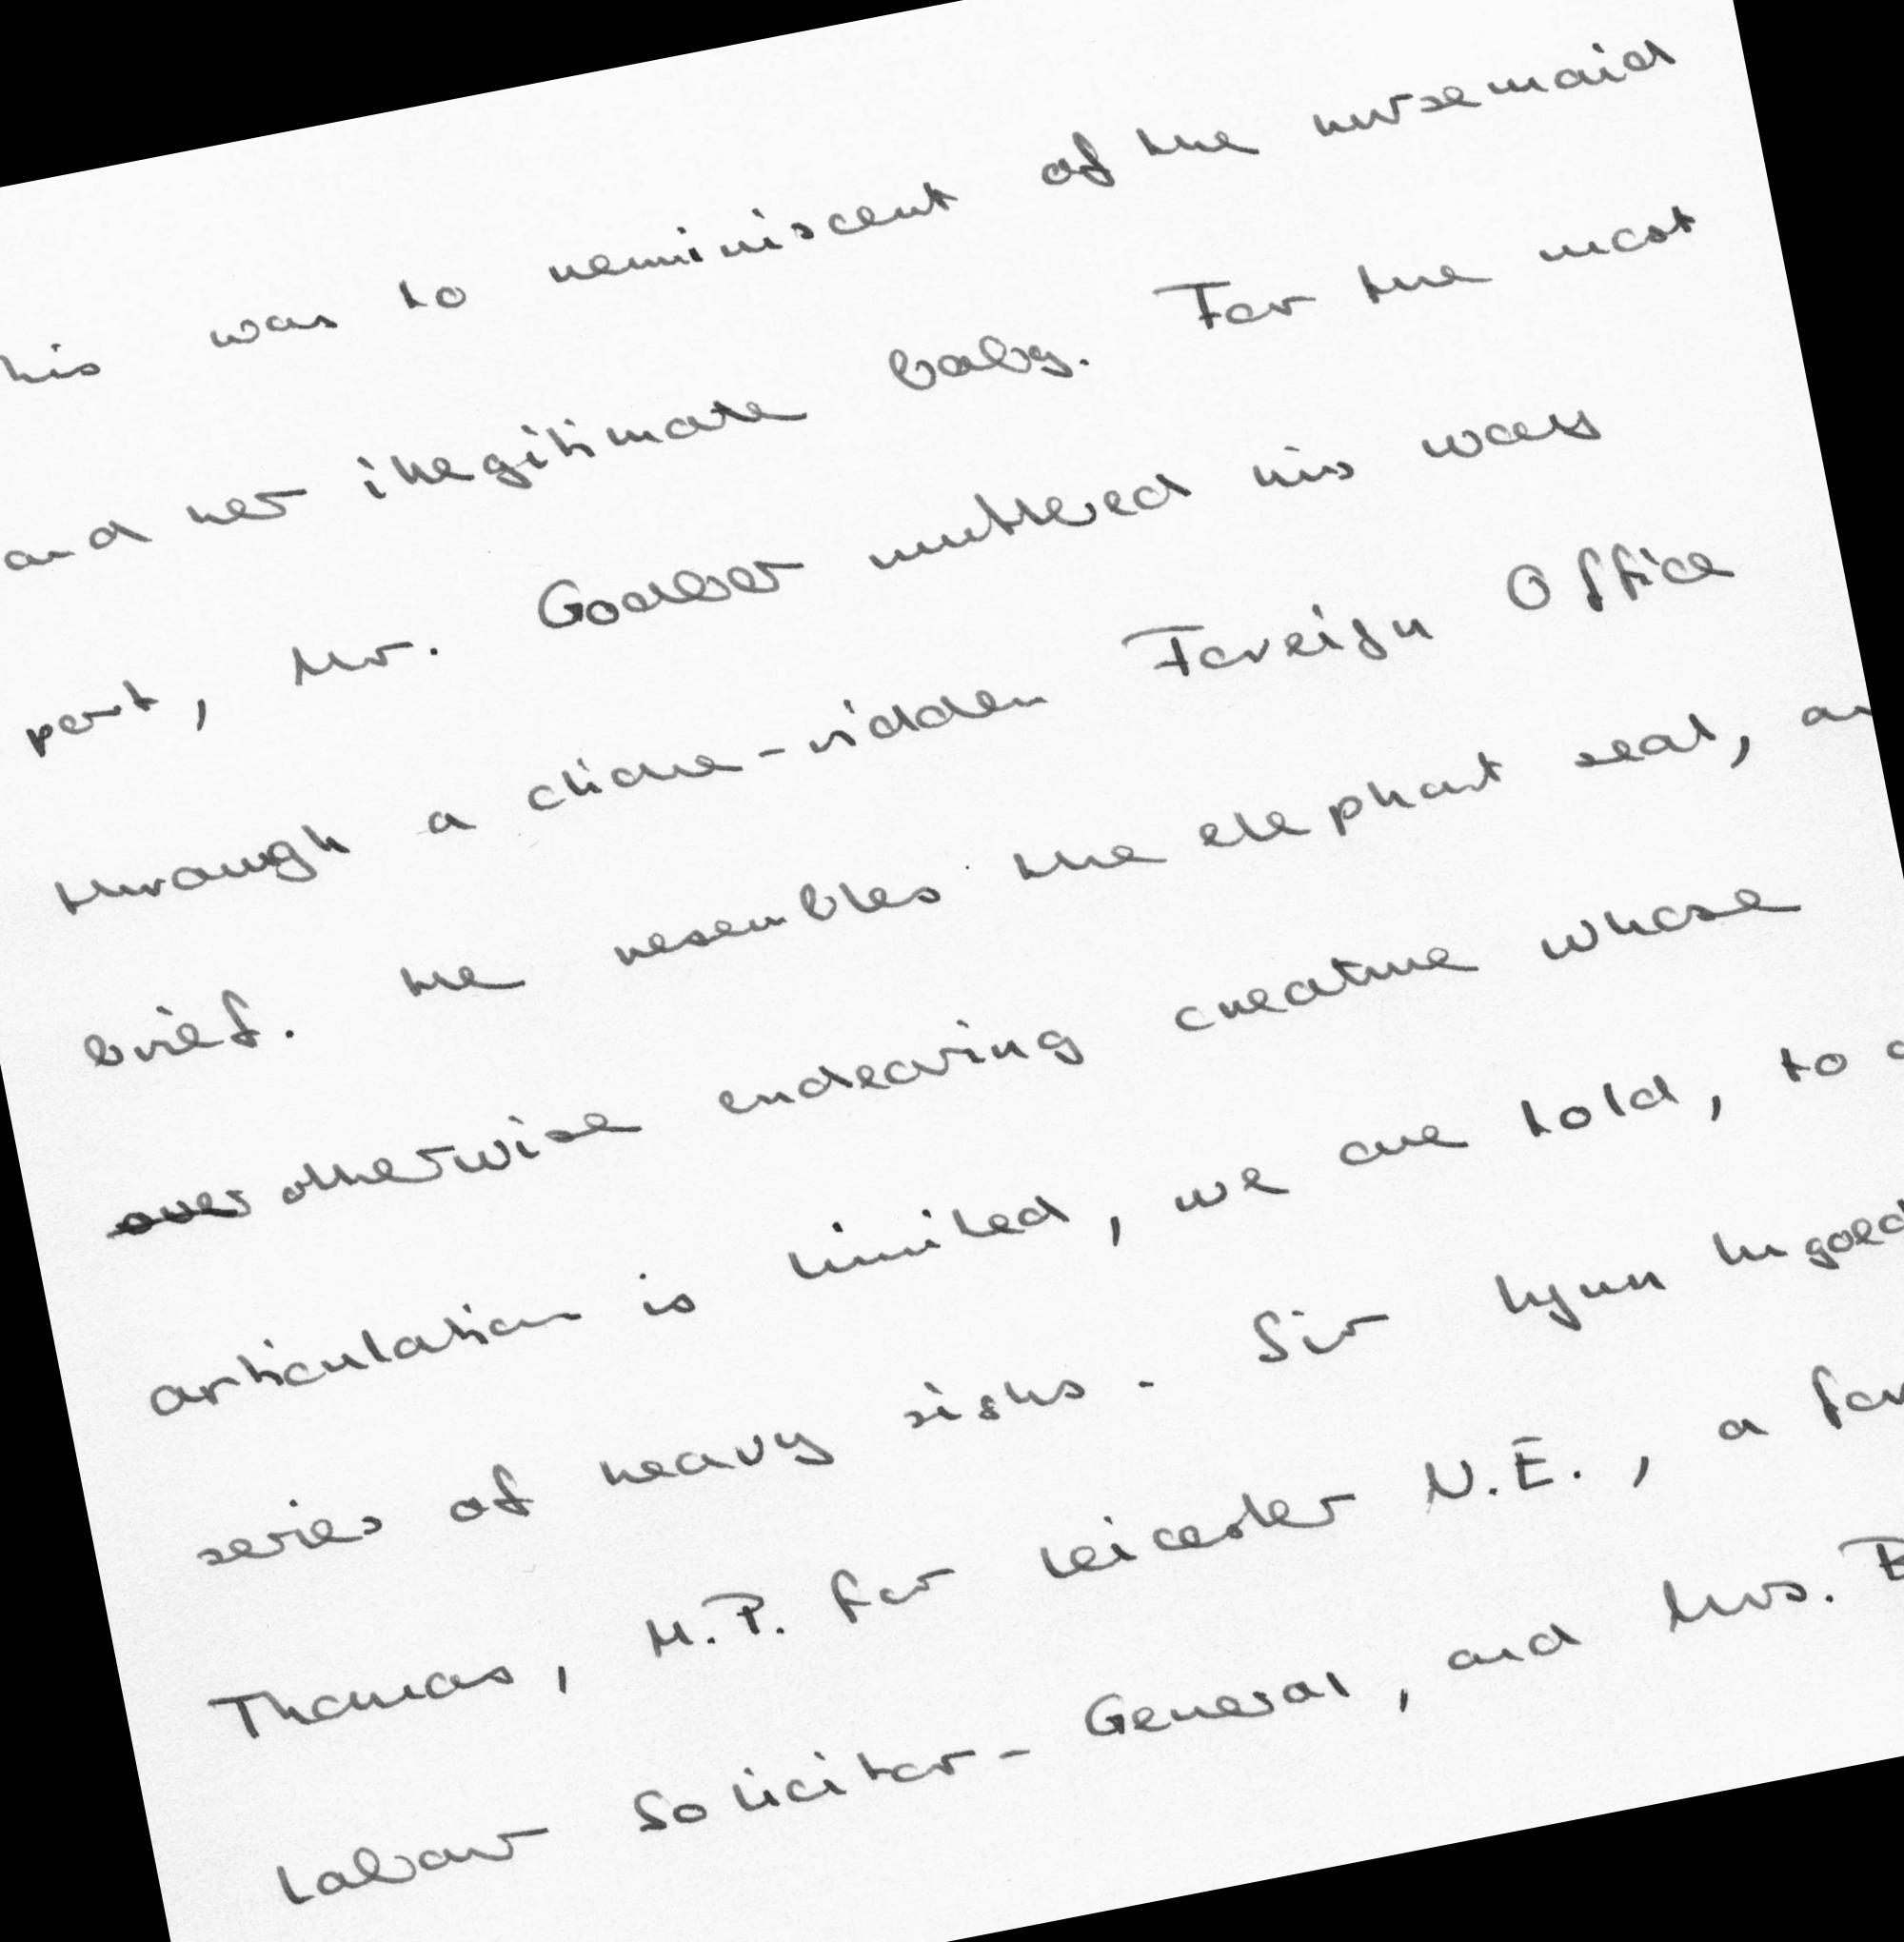 his was to reminiscent of the nursemaid
and her illegitimate baby. For the most
part, Mr. Godber muttered his way
through a cliche-ridden Foreign Office
brief. He resembles the elephant seal, an
over otherwise endearing creature whose
articulation is limited, we are told, to a
series of heavy sighs. Sir Lynn Ungoed
Thomas, M.P. for Leicester N.E., a for
Labour Solicitor-General, and Mrs. B